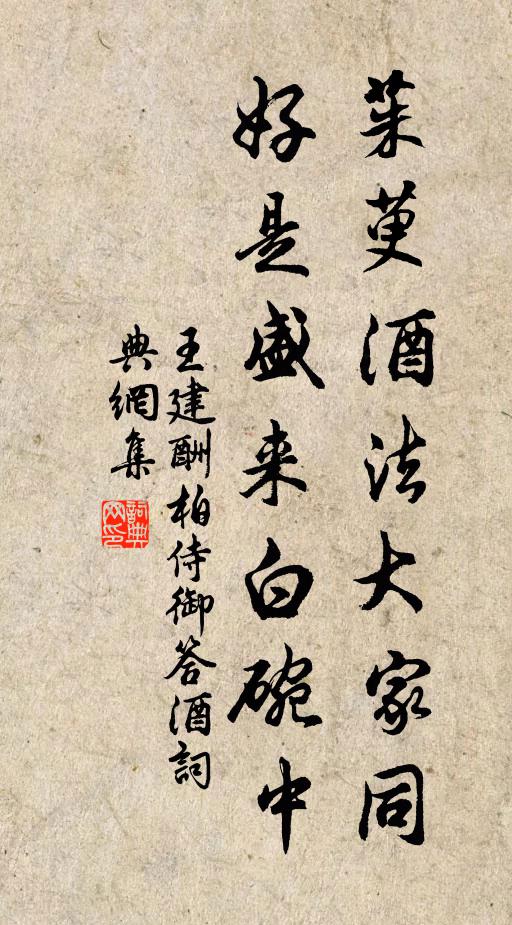 茱萸酒法大家同
好是盛来白碗中
王建酬柏侍御答酒詞
典網集
詞典网印